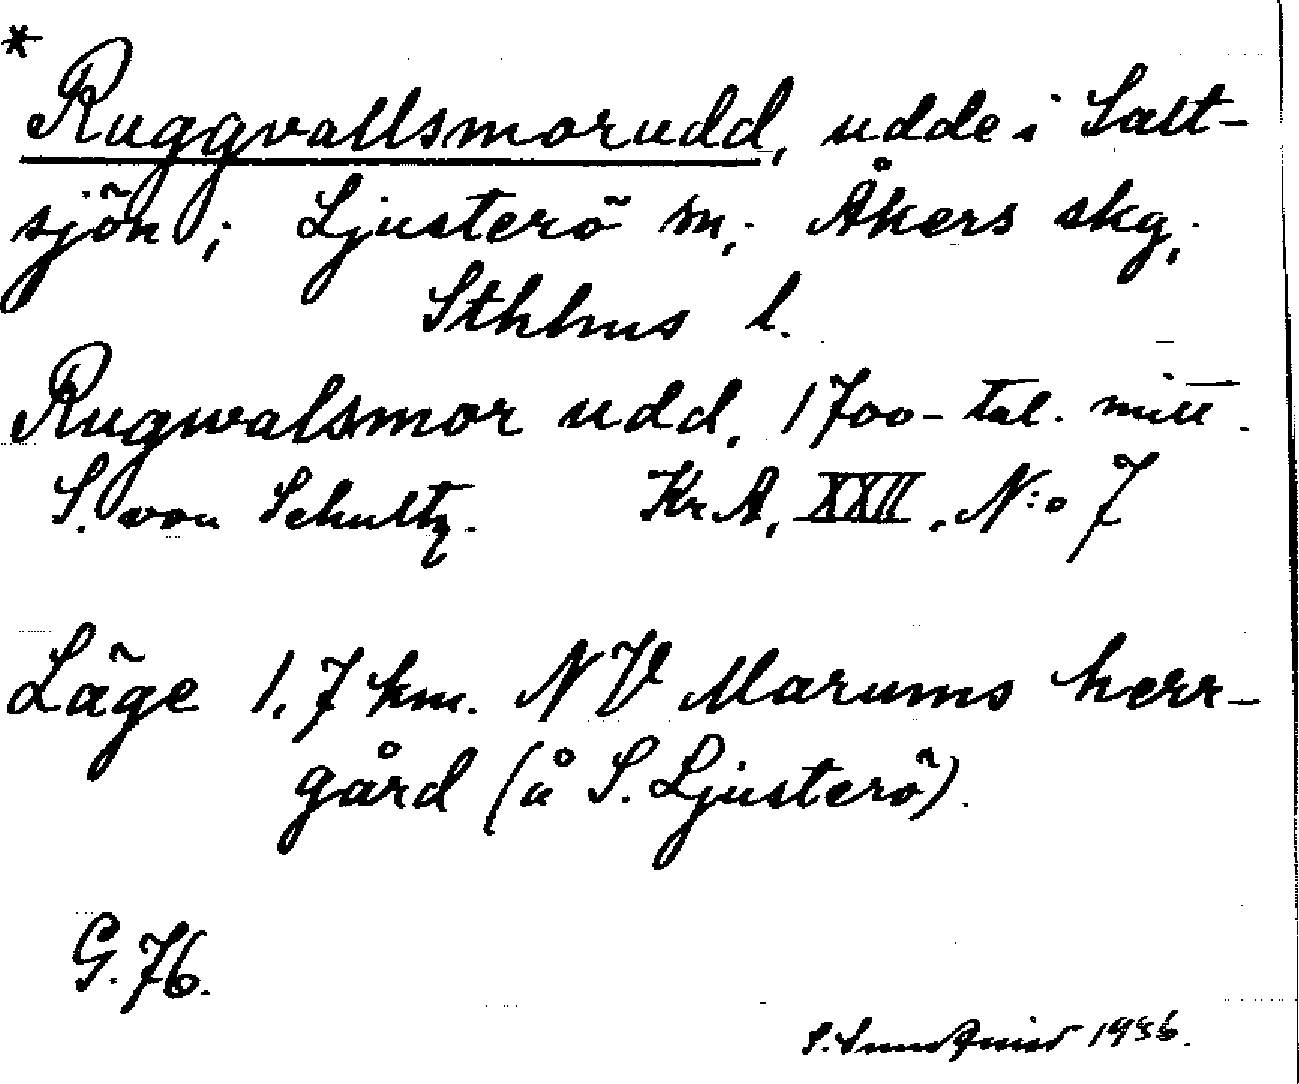 *
Ruggvallsmorudd, udde i Salt-
sjön; Ljusterö sn, Åkers skg,
Sthlms l.
Rugwalsmor udd, 1700-tal. mitt.
S. von Schultz. KrA, XXII, N:o 7
Läge 1,7 km. NV Marums herr-
gård (å S. Ljusterö).
G.76.
S. 1936.